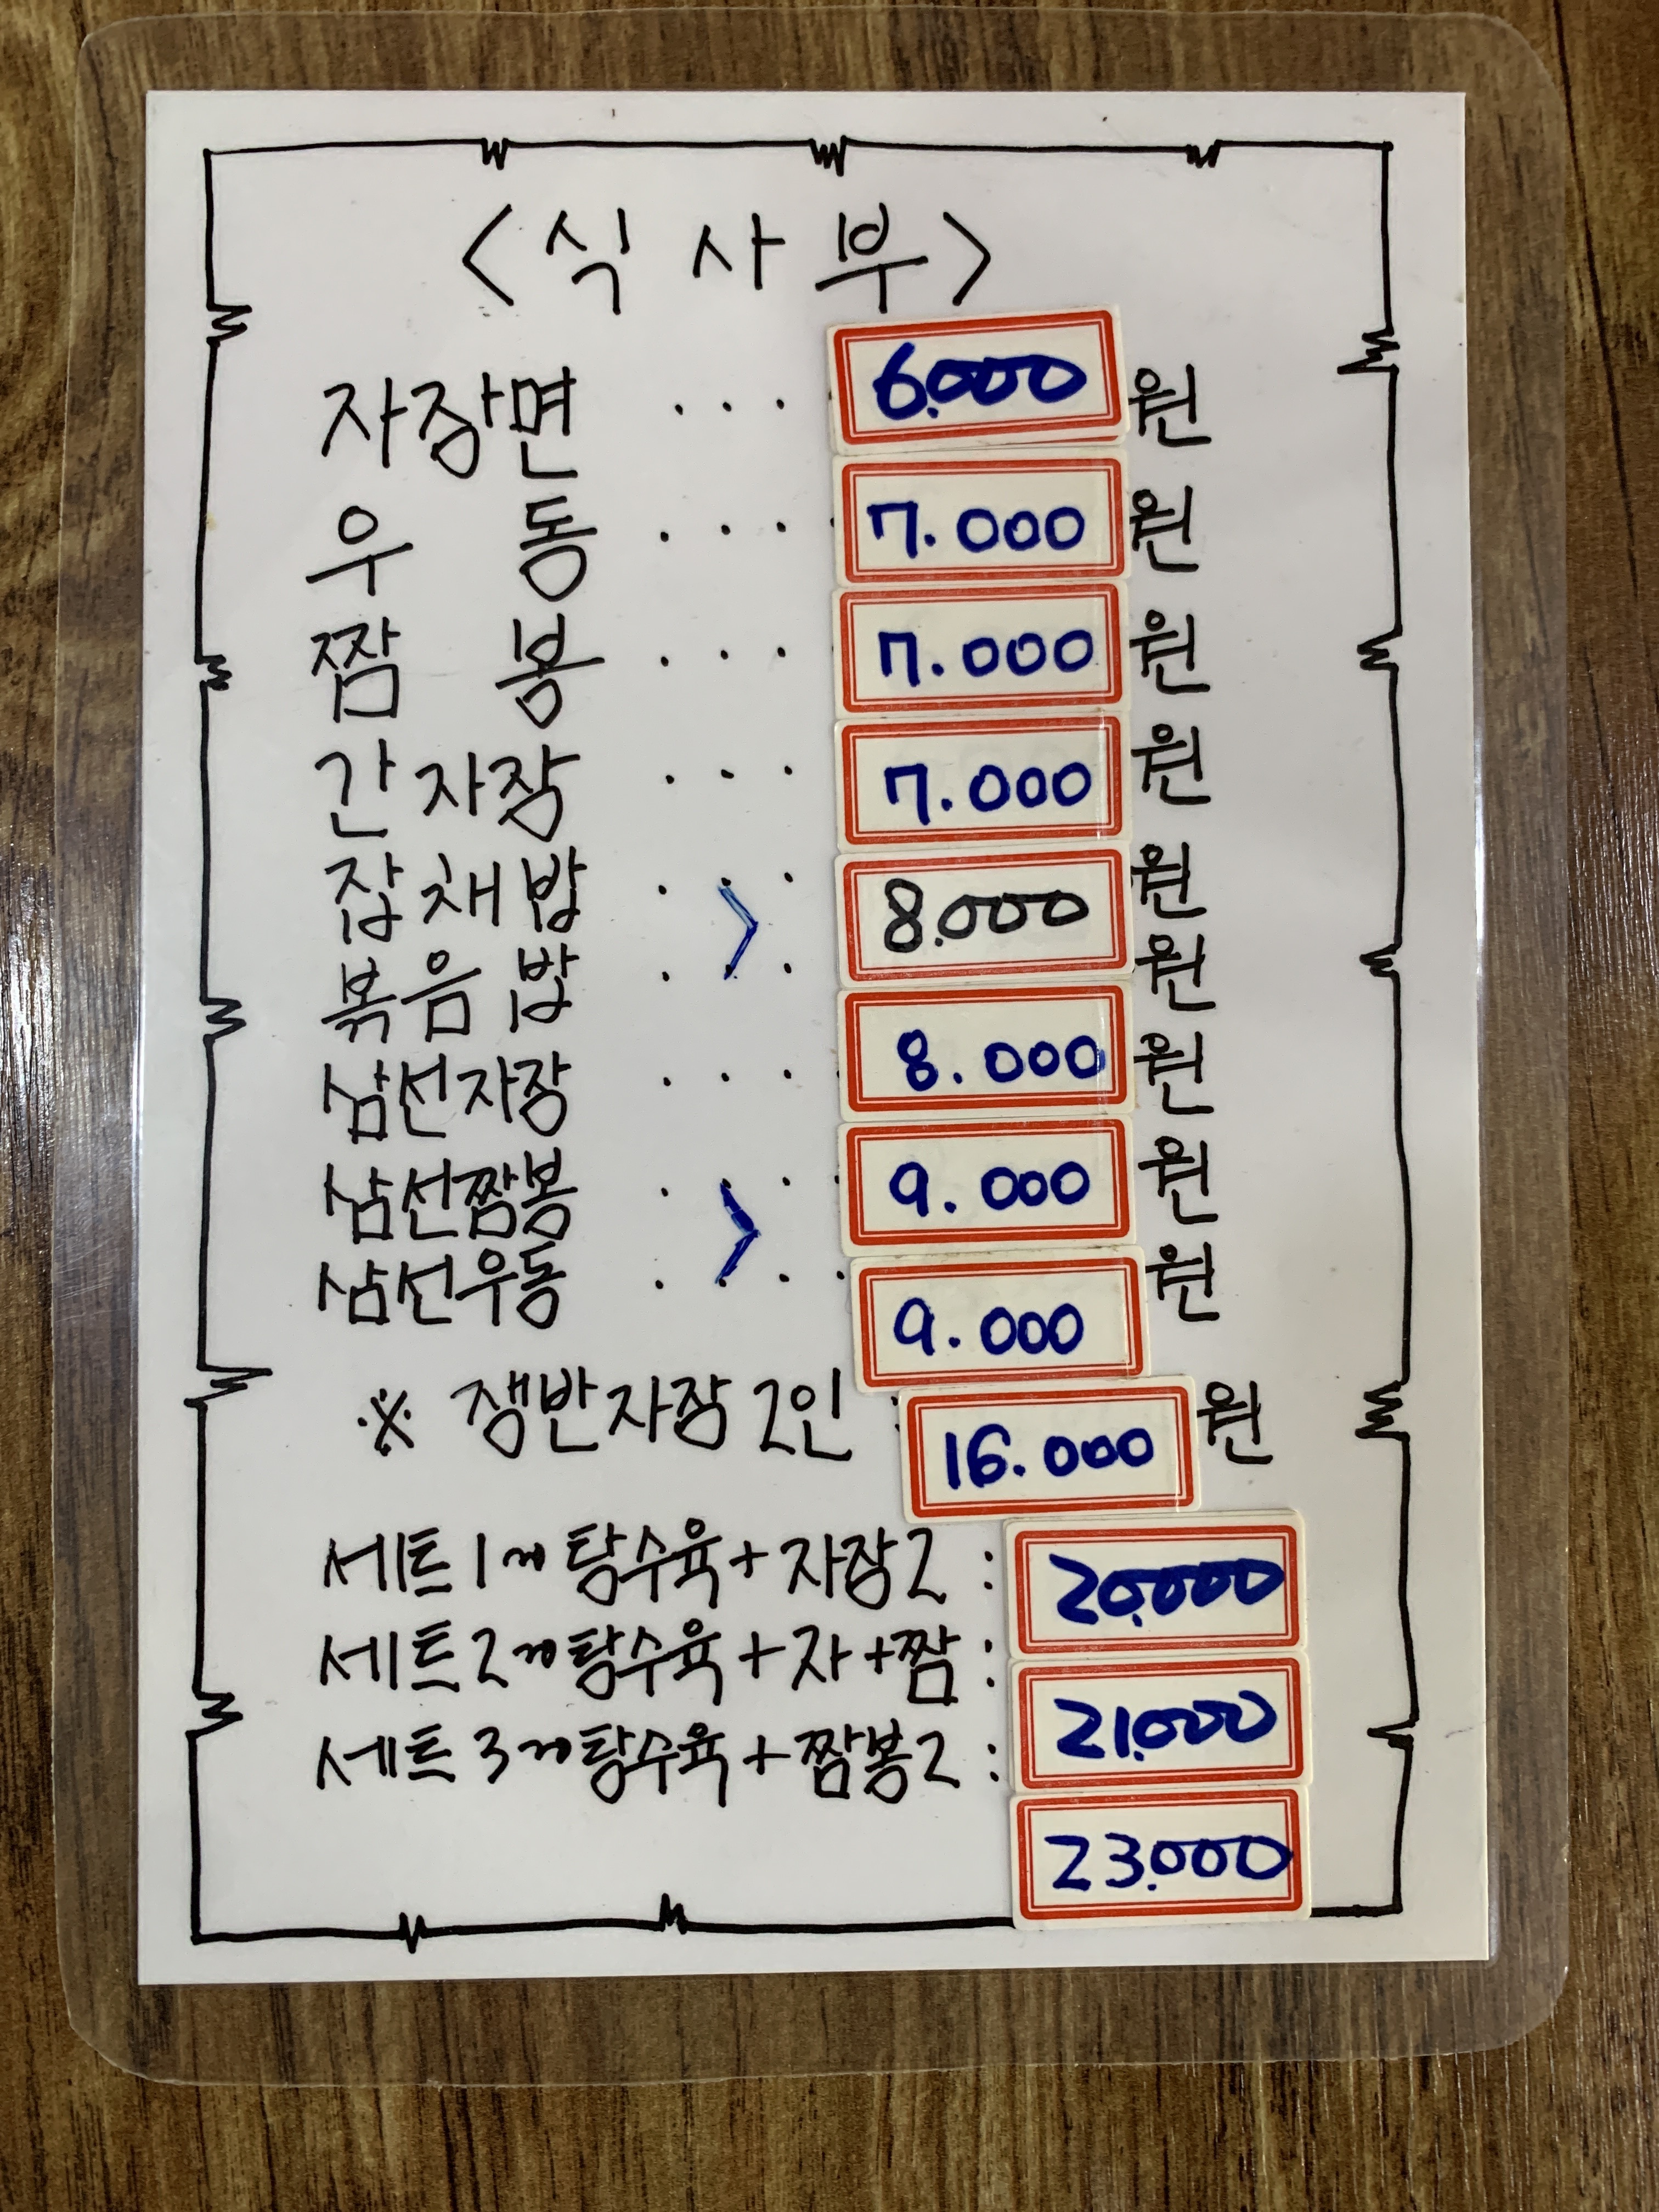 <식사부>
자장면 ... 6.000 원
우 동 ... 7.000 원
짬 봉 ... 7.000 원
간자장 ... 7.000 원
잡채밥 ... > 8.000 원
볶음밥 ... 원
삼선자장 ... 8.000 원
삼선짬봉 ... > 9.000 원
삼선우동 .... 9.000 원
※ 쟁반자장 2인 : 16.000 원
세트1~탕수육+자장2 : 20.000
세트2~탕수육+자+짬 : 21.000
세트3~탕수육+짬봉2 : 23.000